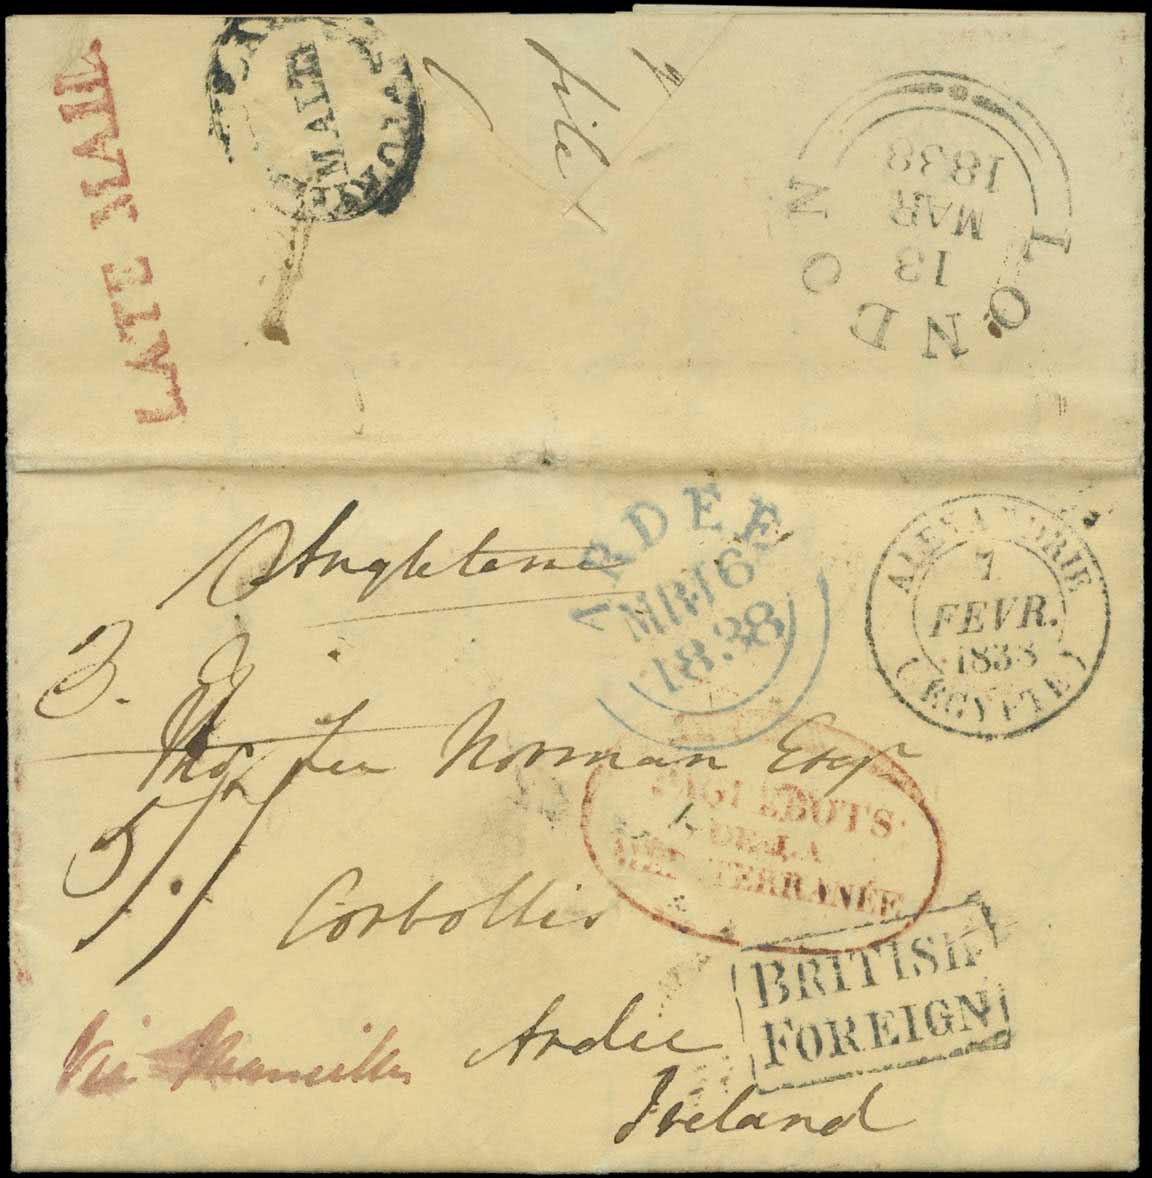 LATE MAIL
MALT
LONDON
13
MAR
1838
Angleterre
ARDEE
MR 16
1838
ALEXANDRIE
7
FEVR.
1838
(EGYPTE)
3.
Thos Lee Norman Esqr
5//
PAQUEBOTS
DE LA
MEDITERRANÉE
Corbollis
BRITISH
FOREIGN
Via Marseilles
Ardee
Ireland